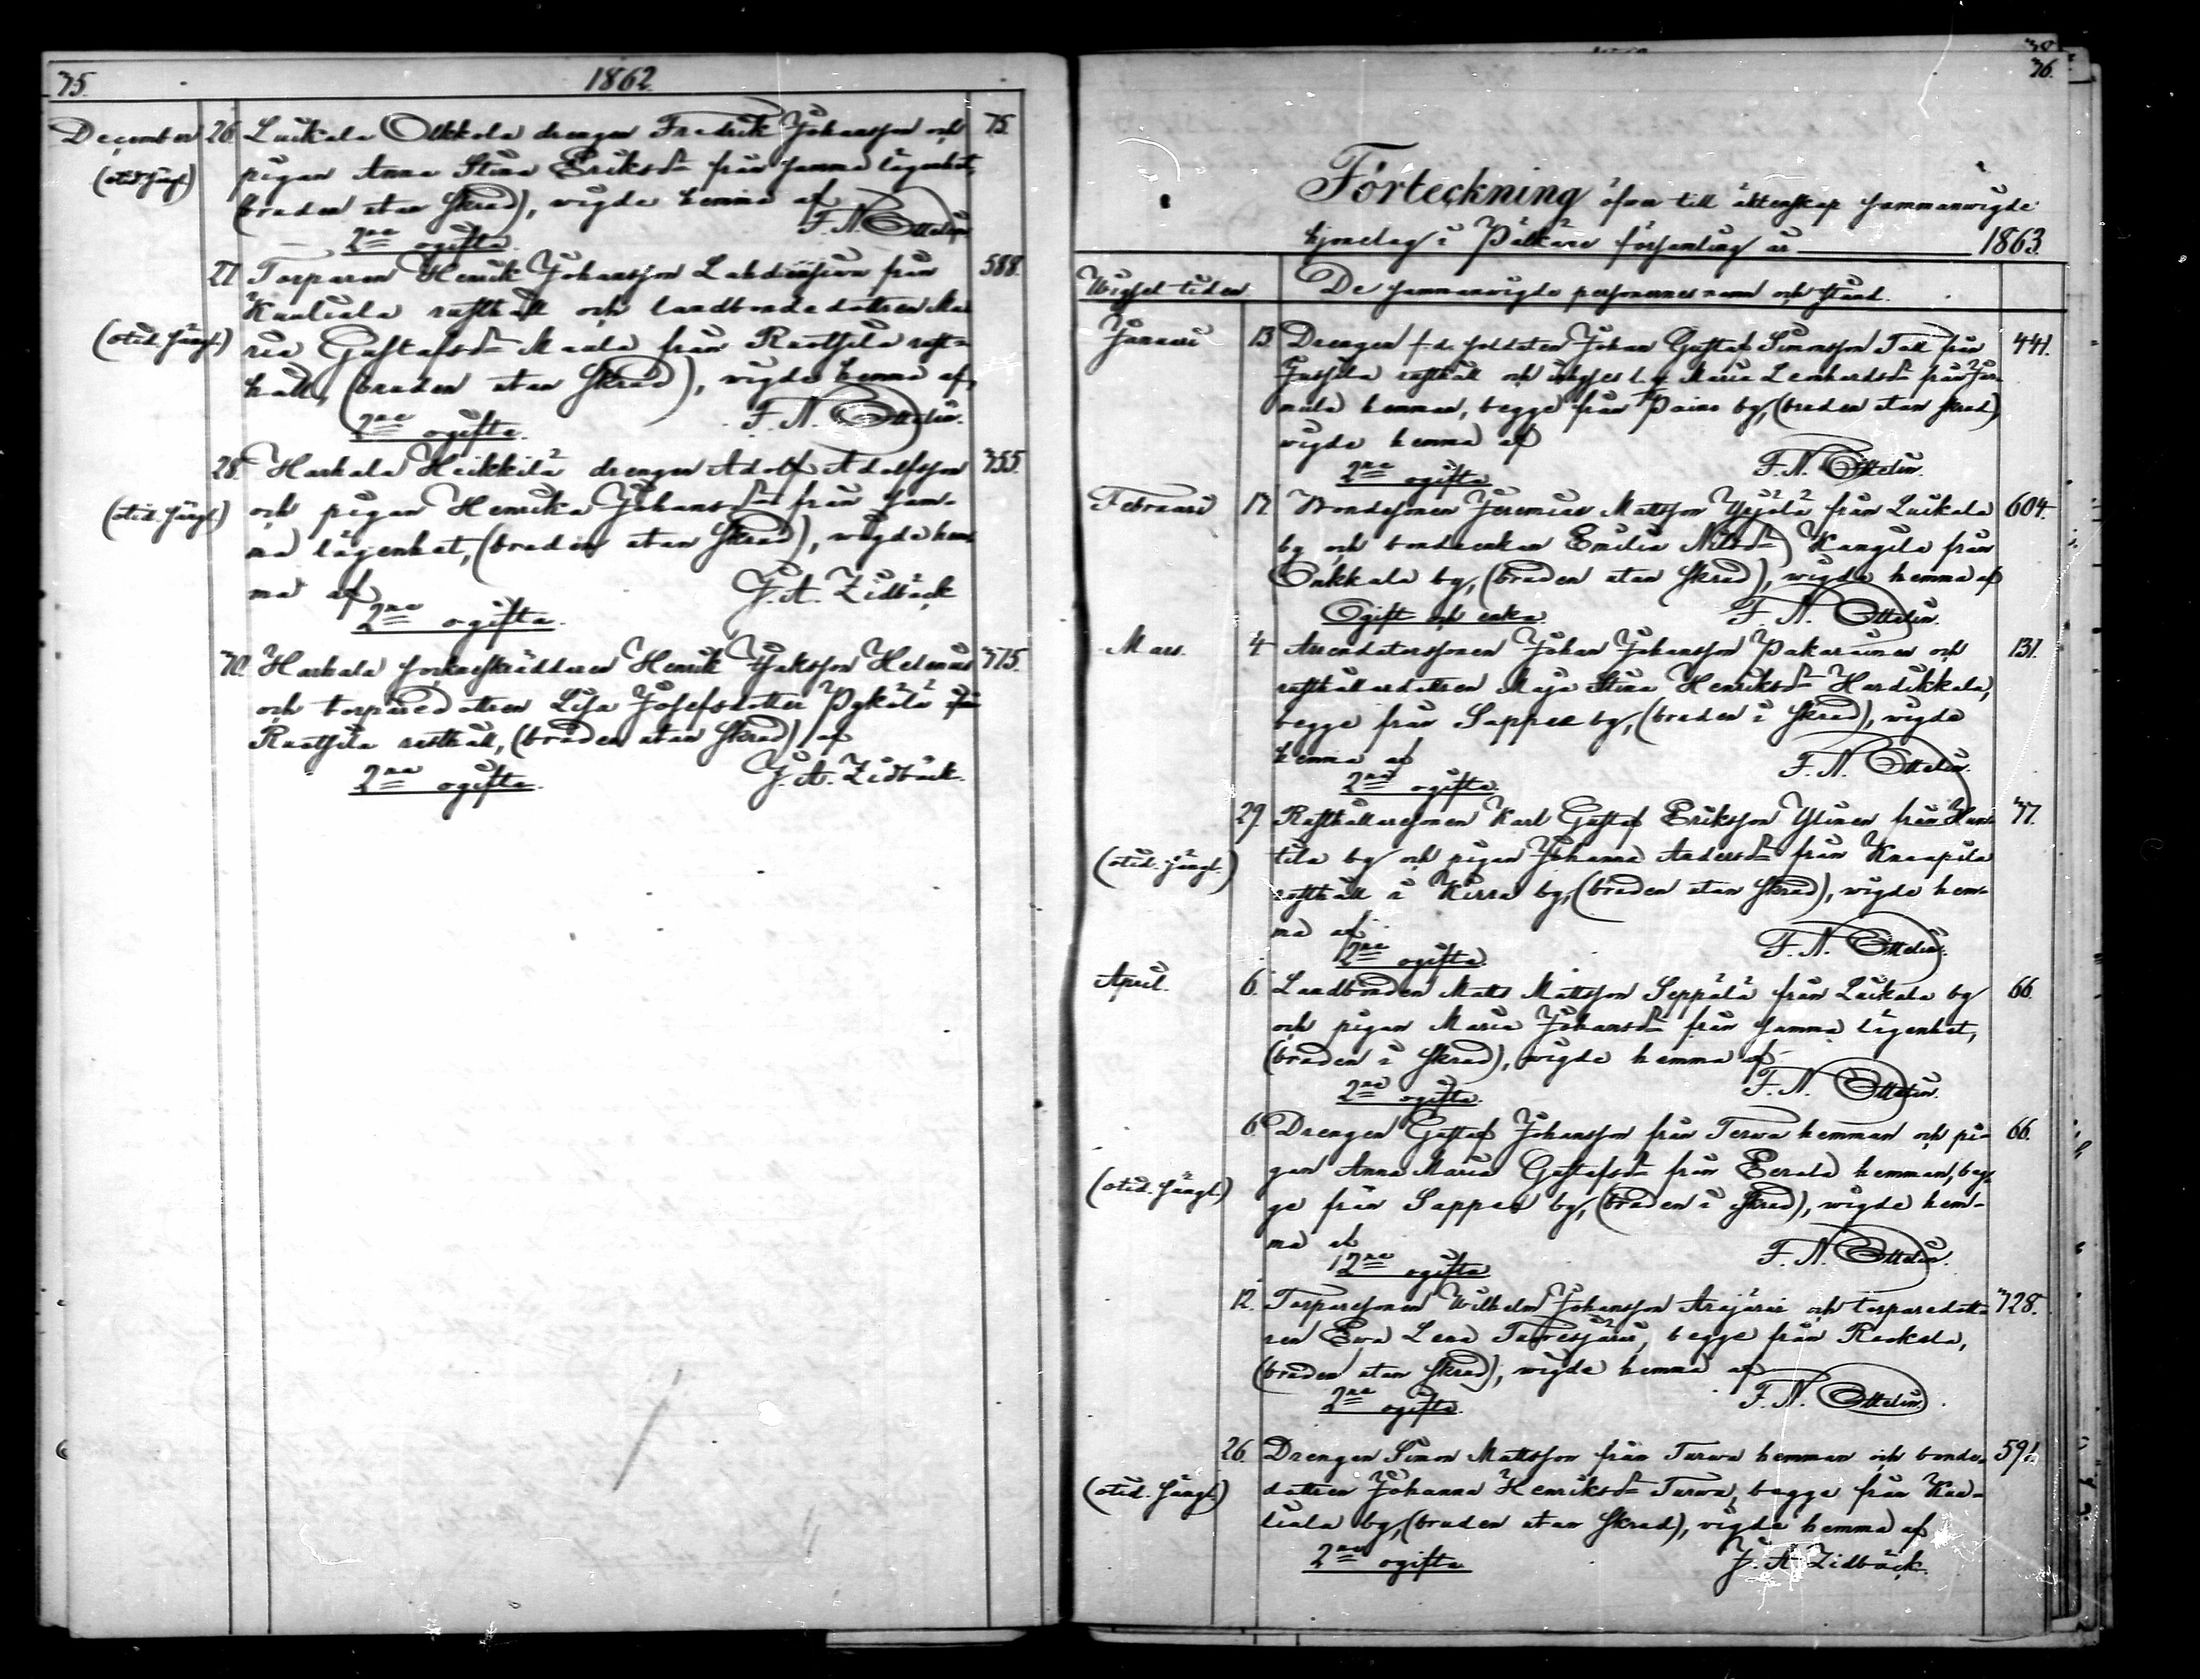 75. 1862.
December 26. Luikala Olkkola drengen Fredrik Johansson och 75.
(otid. lägl.) pigan Anna Stina Eriksdr från samma lägenhet,
(bruden utan Skrud), wigde hemma af
2ne ogifta. F. N. Ottelin.
27. Torparen Henrik Johansson Lahdensivu från 588.
Kauliala rusthåll och landbondedottren Ma-
(otid. lägl.) ria Gustafsdr Maula från Rautsila rust-
håll, (bruden utan Skrud), wigde hemma af,
2ne ogifta. F. N. Ottelin.
28. Harhala Heikkilä drengen Adolf Adolfsson 755.
(otid. lägl.) och pigan Henrika Johansdr från sam-
ma lägenhet, (bruden utan Skrud), wigde hem-
ma af J. A. Lidbäck
2ne ogifta.
Harhala sockneskräddaren Henrik Isaksson Helenius 775.
och torparedottren Lisa Josefsdotter Pykälä från
Rautsila rusthåll, (bruden utan Skrud) af
2ne ogifta. J. A. Lidbäck.
76.
Förteckning öfver till äktenskap sammanwigde
hjonelag i Pälkäne församling år 1863.
Wigsel tiden. De sammanwigde personernes namn och stånd.
Januari 13. Drengen f.d. soldaten Johan Gustaf Simonsson Tall från 441.
rusthåll och Maria Lenhardsdr från
hemman, begge från Paino by, (bruden utan skrud)
wigde hemma af
2ne ogifta F. N. Ottelin.
Februari 17. Bondesonen Jeremias Mattsson Yrjölä från Luikala 604.
by och bondeenkan Emilia Nilsdr Kangila från
Onkkala by, (bruden utan Skrud), wigde hemma af
Ogift och enka. F. N. Ottelin.
Mars. 4 Arrendatorssonen Johan Johansson Pakarinen och 131.
rusthållardottren Maja Stina Henriksdr Hardikkala,
begge från Sappee by, (bruden i Skrud), wigde
hemma af F. N. Ottelin.
2ne ogifta.
29. Rusthållaresonen Karl Gustaf Eriksson Ylinen från Hun- 77.
(otid. lägl.) tila by och pigan Johanna Andersdr från Knaapila
rusthåll i Kirra by, (bruden utan Skrud), wigde hem-
ma af F. N. Ottelin.
2ne ogifta.
April. 6. Landbonden Matts Mattsson Seppälä från Luikala by 66.
och pigan Maria Johansdr från samma lägenhet,
(bruden i Skrud), wigde hemma af
2ne ogifta. F. N. Ottelin.
6. Drengen Gustaf Johansson från Terwa hemman och pi- 66.
(otid. lägl.) gan Anna Maria Gustafsdr från Eerola hemman, beg-
ge från Sappee by, (bruden i Skrud), wigde hem-
ma af F. N. Ottelin.
2ne ogifta
12. Torparesonen Wilhelm Johansson Arajärvi och torparedott- 728.
ren Ewa Lena begge från Raokala,
(bruden utan Skrud), wigde hemma af
2ne ogifta. F. N. Ottelin.
26. Drengen Simon Mattsson från Turwa hemman och bonde- 591.
(otid. lägl.) dottren Johanna Henriksdr Turwa, begge från Kau-
liala by, (bruden utan Skrud), wigde hemma af
2ne ogifta J. A. Lidbäck.